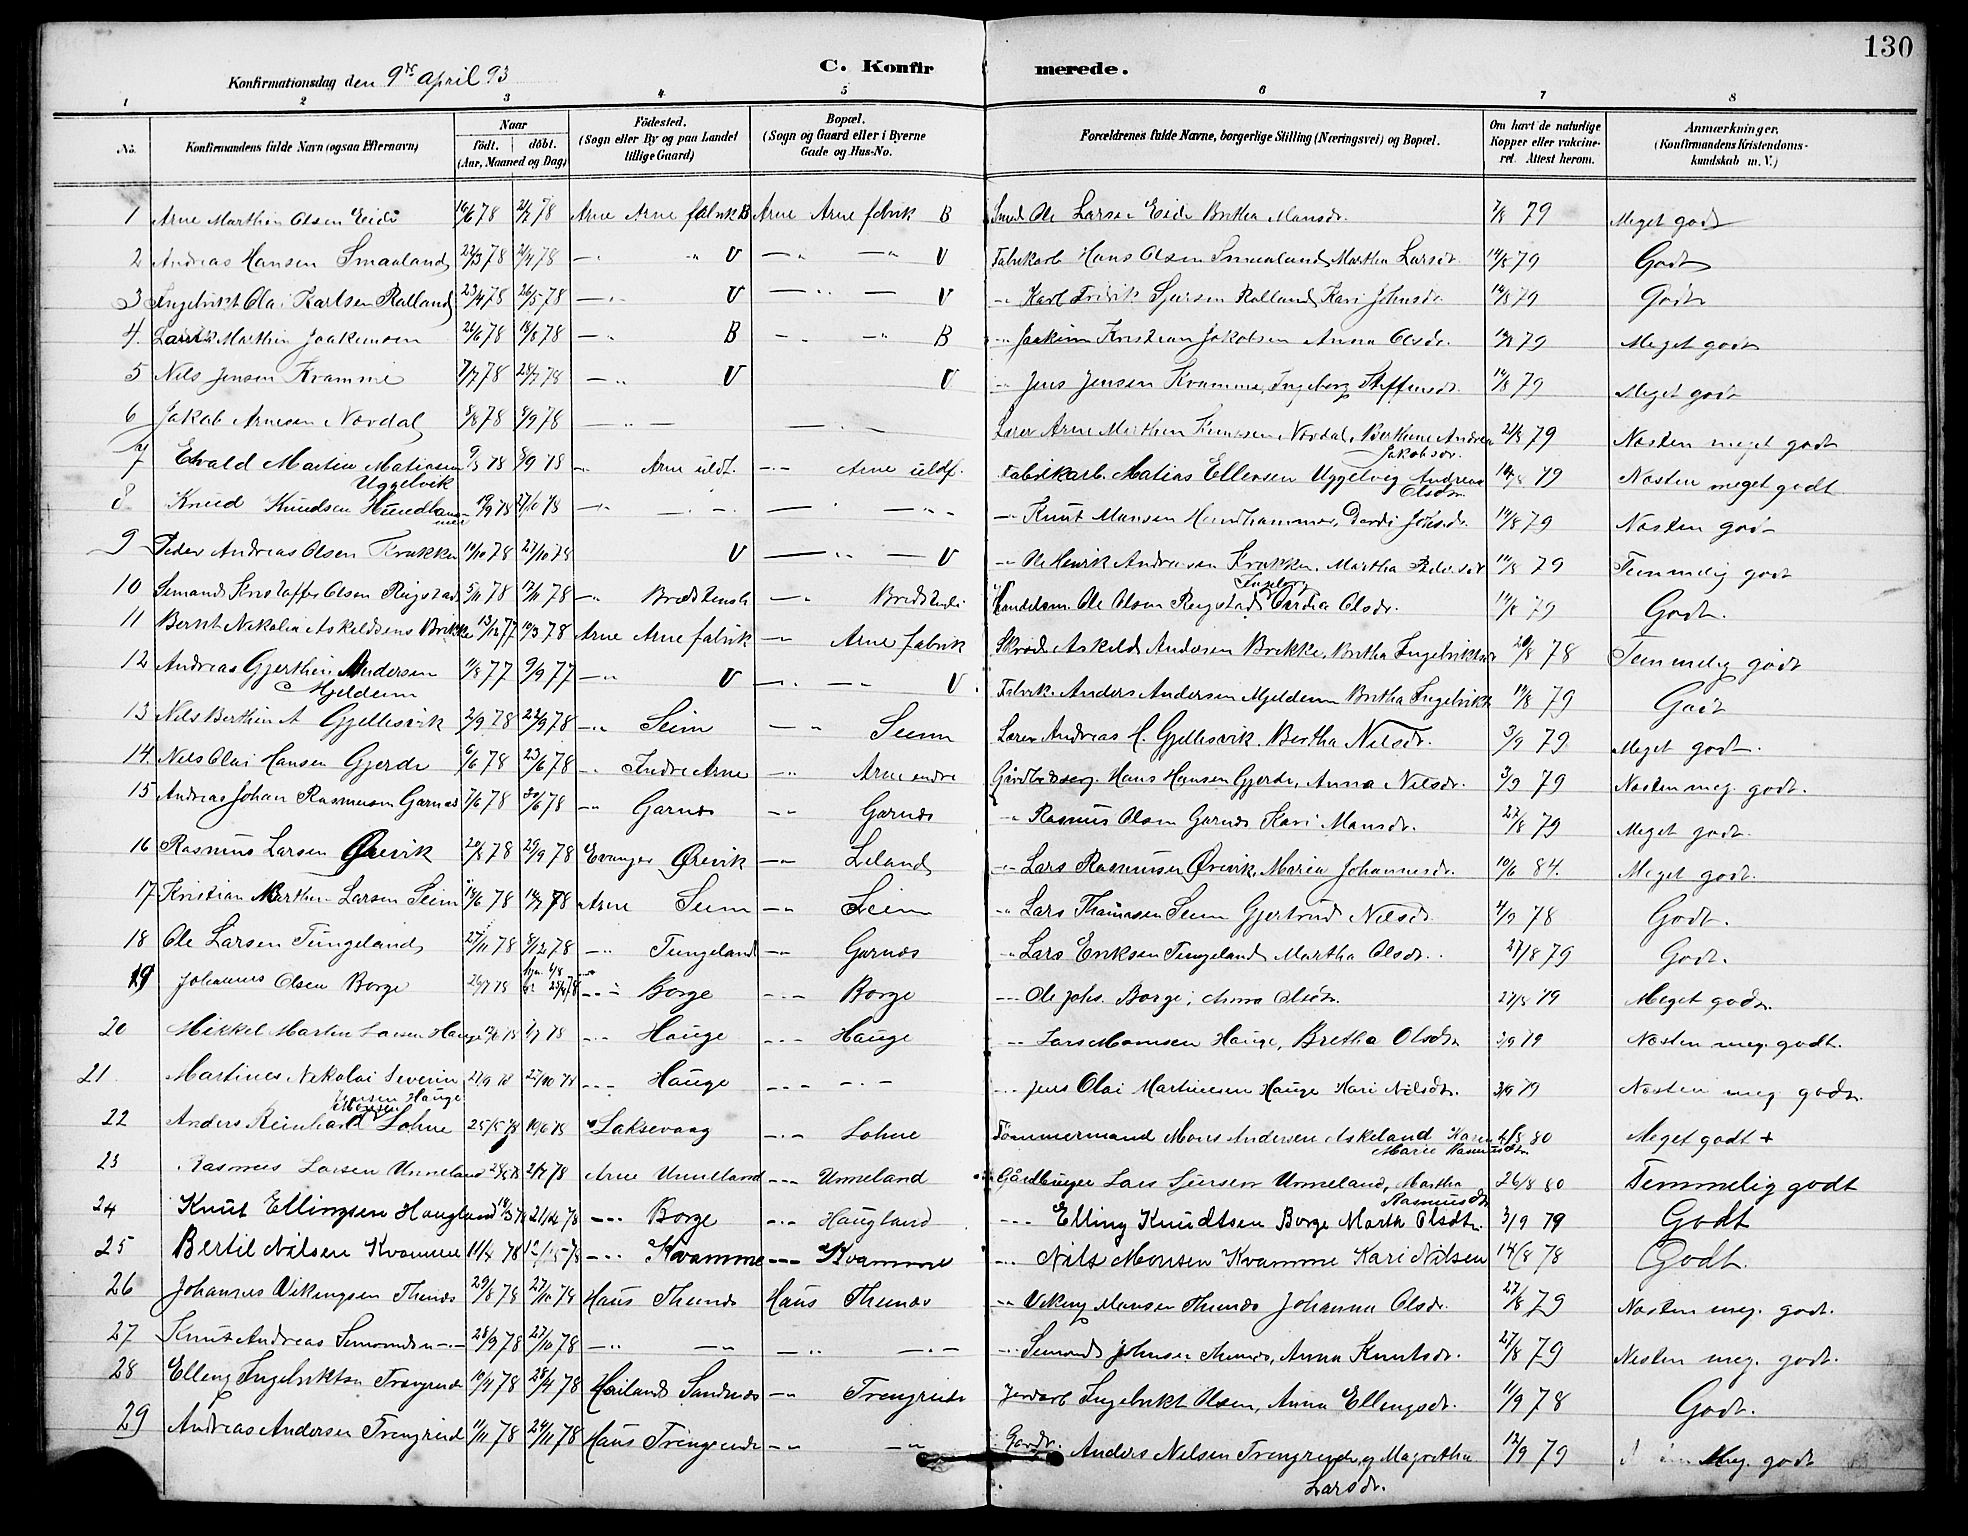 130
C. Konfirmerede.
Konfirmationsdag den 9de April 93
1 2 3 4 5 6 7 8
No. Konfirmandens fulde Navn (ogsaa Efternavn) Naar födt. döbt. (Aar, Maaned og Dag) Födested. (Sogn eller By og paa Landet tillige Gaard) Bopæl. (Sogn og Gaard eller i Byerne Gade og Hus-No. Forældrenes fulde Navne, borgerlige Stilling (Næringsvei) og Bopæl. Om havt de naturlige Kopper eller vakcineret. Attest herom. Anmærkninger. (Konfirmandens Kristendomskundskab m. V.)
1 Arne Marthin Olsen Eide 16/6 78 21/7 78 Arne Arne fabrik B Arne Arne fabrik B Smed Ole Larsen Eide Britha Monsdr. 79 Meget godt
2 Andreas Hansen Smaaland 22/3 78 21/4 78 V V Fabrikarb Hans Olsen Smaaland, Martha Larsdr. 14/8 79 Godt
3 Ingebrikt Olai Karlsen Rolland 23/4 78 26/5 78 V V Karl Fridrik Sjursen Rolland, Kari Johnsdr. 14/8 79 Godt
4 Marthin Joakimsen 26/6 78 18/8 78 B B Joakim Kristian Jakobsen Anna Olsdr. 79 Meget godt
5 Nils Jensen Kvamme 7/7 78 28/7 78 V V Jens Jensen Kvamme, Ingeborg Steffensdr. 14/8 79 Meget godt
6 Jakob Arnesen Nordal 8/8 78 8/9 78 Lærer Arne Marthin Nordal, Berthine Andrea Jakobsdr. 21/8 79 Næsten meget godt
7 Edvald Martin Matiasen Uggelvik 9/8 78 8/9 78 Arne uldf. Arne uldf. Fabrikarb. Matias Ellensen Uggelvig Andrea Olsdtr. 79 Næsten meget godt
8 Knud Knudsen Hundhammer 19/9 78 27/10 78 Knut Monsen Hundhammer, 14/8 79 Næsten godt
9 Peder Andreas Olsen Krakken 11/10 78 27/10 78 V V Ole Henrik Andreasen Krakken, Martha Pedersdr 14/8 79 Temmelig godt
10 Simand Kristoffer Olsen Rigstad 5/11 78 78 Bredstensli Bredstensli Handelsm. Ole Olsen Rigstad, Ingeborg Cardia Olsdr. 14/8 79 Godt.
11 Bernt Nikolai Askeldsens Brekke 13/12 77 10/3 78 Arne Arne fabrik Arne fabrik Askeld Andersen Brekke, Britha Ingebriktsdr 20/8 78 Temmelig godt
12 Andreas Gjerthin Andersen Mjeldeim 11/8 77 9/9 77 V V Fabrik. Anders Andersen Mjeldeim Britha Ingebrikts 14/8 79 Godt
13 Nils Berthin A Gjellesvik 2/9 78 22/9 78 Seim Seim Lærer Andreas H. Gjellesvik, Bertha Nilsdr. 3/9 79 Meget godt.
14. Nils Olai Hansen Gjerde 6/6 78 23/6 78 Indre Arne Arne indre Gårdbruger. Hans Hansen Gjerde, Anna Nilsdr. 3/9 79 Næsten meg. godt.
15 Andreas Johan Rasmusen Garnæs 7/6 78 30/6 78 Garnæs Garnæs Rasmus Olsen Garnæs Kari Monsdr. 22/8 79 Meget godt.
16 Rasmus Larsen Ørevik 20/8 78 29/9 78 Evanger Ørevik Leland Lars Rasmussen Ørevik, Maria Johannesdr. 10/6 84. Meget godt.
17 Kristian Marthin Larsen Seim 14/6 78 14/7 78 Arne Seim Seim Lars Thomassen Seim Gjertrud Nilsdr. 78 Godt.
18 Ole Larsen Tungeland 27/11 78 8/12 78 Tungeland Garnæs Lars Eriksen Tungeland Martha Olsdr. 27/8 79 Godt.
19 Johannes Olsen Borge 26/7 78 25/8 78 Borge Borge Ole Johs. Borge, Anna Olsdtr. 27/8 79 Meget godt.
20 Mikkel Martin Larsen Hauge 78 7/7 78 Hauge Hauge Lars Monsen Hauge, Bretha Olsdtr 3/9 79 Næsten meg. godt.
21 Martines Nikolai Severin Jensen Hauge 21/9 78 27/10 78 Hauge Jens Olai Martinesen Hauge Kari Nilsdtr. 3/9 79 Næsten meg. godt.
22 Anders Reinhard Monsen Lohne 25/5 78 10/6 78 Laksevaag Lohne Tömmermand Mons Andersen Askeland Karen Marie Rasmusdtr 4/8 80 Meget godt +
23 Rasmus Larsen Unneland 78 21/7 78 Arne Unneland Unneland Gårdbruger Lars Sjursen Unneland, Martha Rasmusdtr 26/8 80 Temmelig godt
24 Knut Ellingsen Haugland 78 21/4 78 Borge Haugland Elling Knudtsen Borge Marta Olsdtr. 3/9 79 Godt
25 Bertil Nilsen Kvamme 11/4 78 12/5 78 Kvamme Kvamme Nils Monsen Kvamme Kari Nilsen 14/8 78 Godt.
26 Johannes Vikingsen Thunæs 29/8 78 27/10 78 Haus Thunæs Haus Thunæs Viking Monsen Thunæs Johanna Olsdr. 27/8 79 Næsten meg. godt.
27 Knut Andreas Simondsn 28/9 78 27/10 78 Simond Johnsen Thunæs, Anna Knutsdr. 27/8 79 Næsten meg. godt.
28 Elling Ingebriktsn Trengreid 10/4 78 28/4 78 Hosland Sandnæs Trengreide Jordarb Ingebrikt Olsen, Anna Ellingsdr. 11/9 78 Godt.
29 Andreas Andersen Trengreid 11/11 78 24/11 78 Haus Trengreide Gaardr. Anders Nilsen Trengreide, og Magretha Larsdr. 12/9 79 Meg. godt